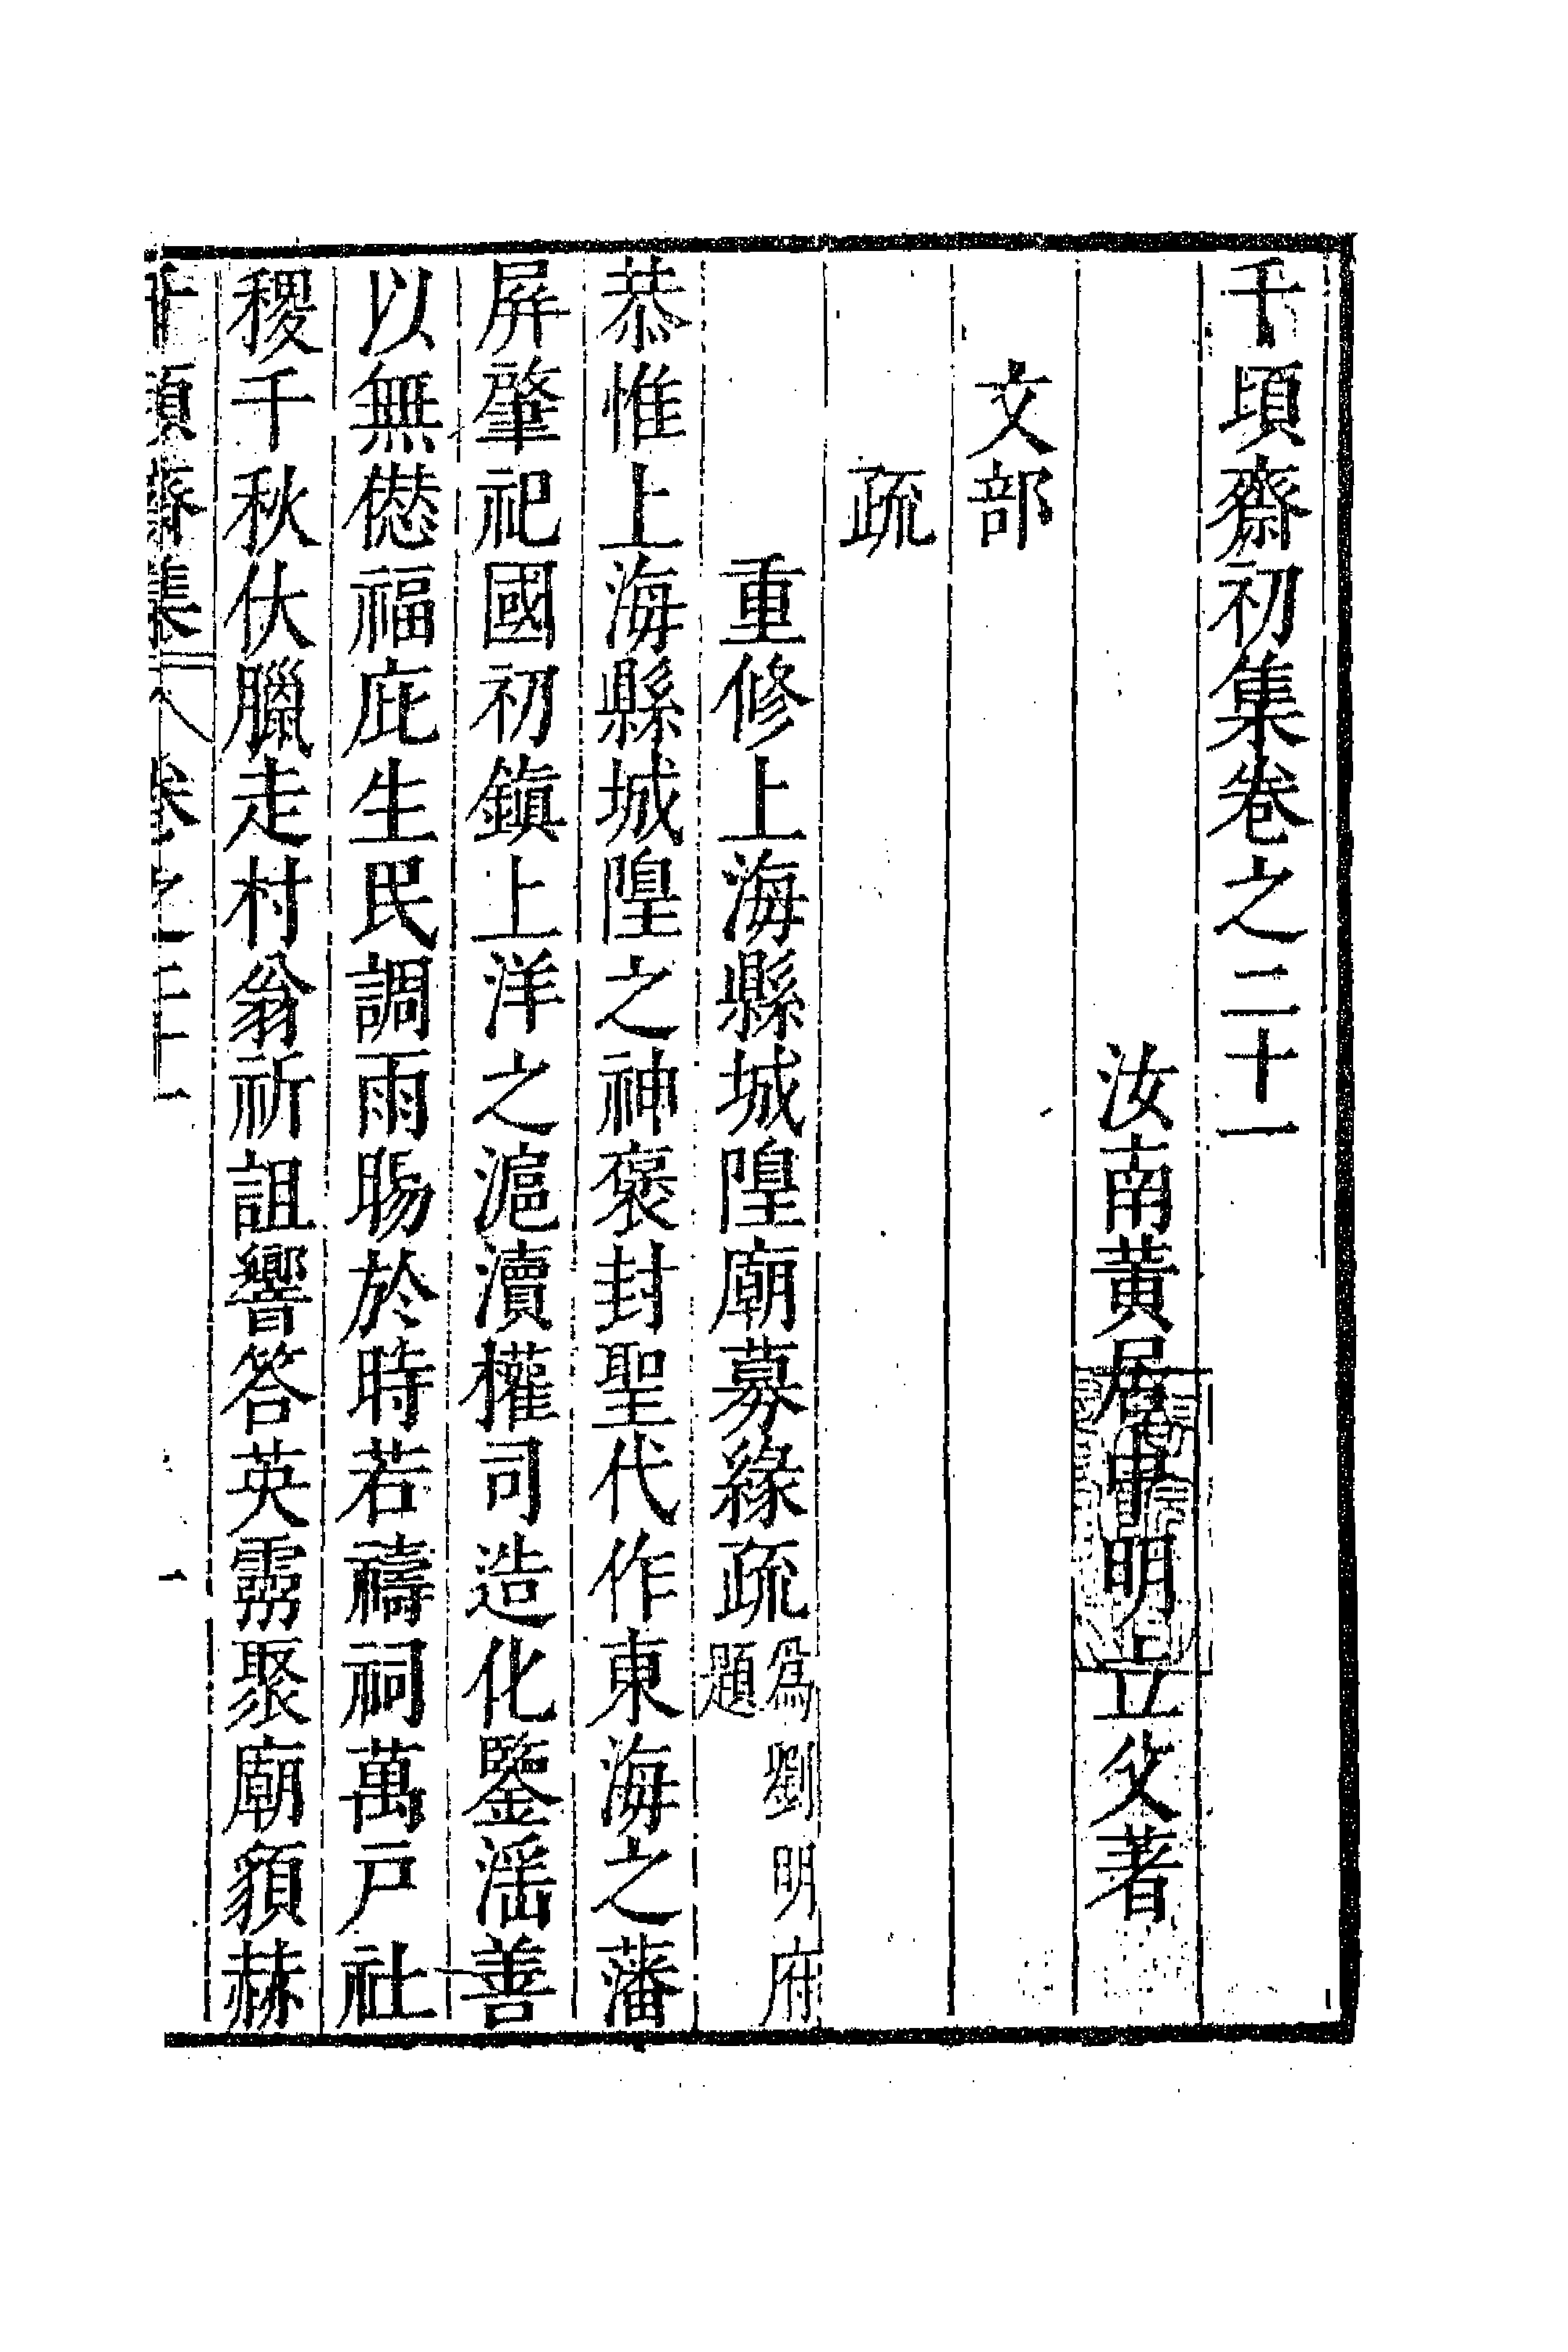 千頃齋初集卷之二十一
汝南黃居中明立父著
文部
疏
重修上海縣城隍廟募緣疏為劉明府題
恭惟上海縣城隍之神褒封聖代作東海之藩
屏肇祀國初鎮上洋之滬瀆權司造化鑒滛善
以無僁福庇生民調雨暘於時若禱祠萬戶社
稷千秋伏臘走村翁祈詛響答英靈聚廟貌赫
千頃齋集 卷之二十一 一